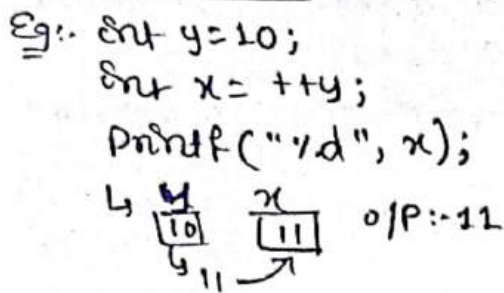 Eg:- int y=10;
int x= ++y;
printf("%d", x);
↳ y x
10 11 o/p:-11
↳ 11